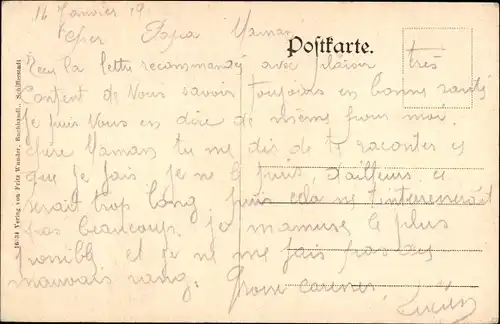 16 Janvier 19
Cher Papa Maman
Postkarte.
Reçu la lettre recommandé avec plaisir très
Content de Vous savoir Toujours en bonne santé
Je puis Vous en dire de même pour moi.
chère Maman tu me dis de te racontes ce
que je fais je ne le puis, d'ailleurs ce
serait trop long, puis cela ne t'interesserait
pas beaucoup. Je m'amuse le plus
possible et je ne me fais pas de
mauvais sang.
Lucien
16/34 Verlag von Fritz Wunder, Buchhandl., Schifferstadt